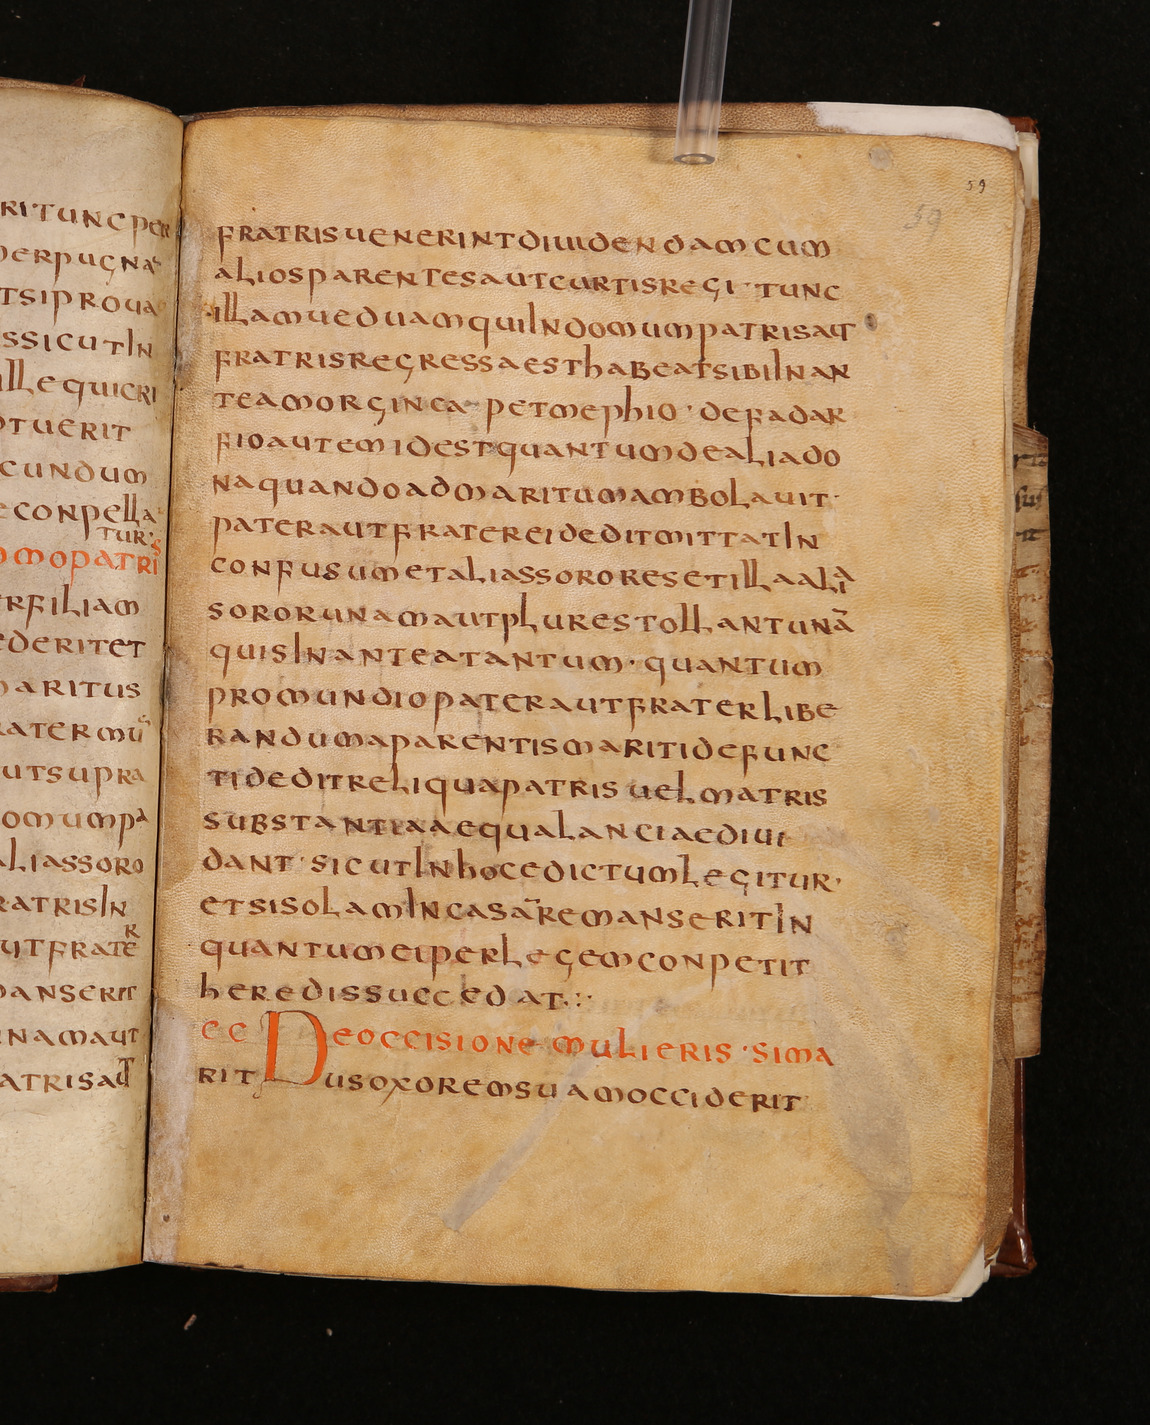 RITUNCPER
ERPUGNA
TSIPROUA
SSICUTIN
ILLEQUICRI
OTUERIT
CUNDUM
ECONPELLA
TUR·
OMOPATRIS
ERFILIAM
EDERITET
MARITUS
RATERMŪ
UTSUPRA
OMUMPA
ALIASSORO
RATRISIN
UTFRATER
MANSERIT
NAMAUT
ATRISAUT
59
59
FRATRISUENERINTDIUIDENDAMCUM
ALIOSPARENTESAUTCURTISREGI·TUNC
ILLAMUEDUAMQUIINDOMUMPATRISAUT
FRATRISREGRESSAESTHABEATSIBIINAN
TEAMORGINCA PETMEPHIO·DEFADAR
FIOAUTEMIDESTQUANTUMDEALIADO
NAQUANDOADMARITUMAMBOLAUIT·
PATERAUTFRATEREIDEDITMITTATIN
CONFUSUMETALIASSORORESETILLAALIA
SORORUNAMAUTPLURESTOLLANTUNĀ
QUISINANTEATANTUM·QUANTUM
PROMUNDIOPATERAUTFRATERLIBE
RANDUMAPARENTISMARITIDEFUNC
TIDEDITRELIQUAPATRISUELMATRIS
SUBSTANTIAAEQUALANCIAEDIUI
DANT·SICUTINHOCEDICTUMLEGITUR·
ETSISOLAMINCASĀREMANSERITIN
QUANTUMEIPERLEGEMCONPETIT
HEREDISSUCCEDAT·:·
CC DEOCCISIONEMULIERIS·SIMA
RITUSOXOREMSUAMOCCIDERIT